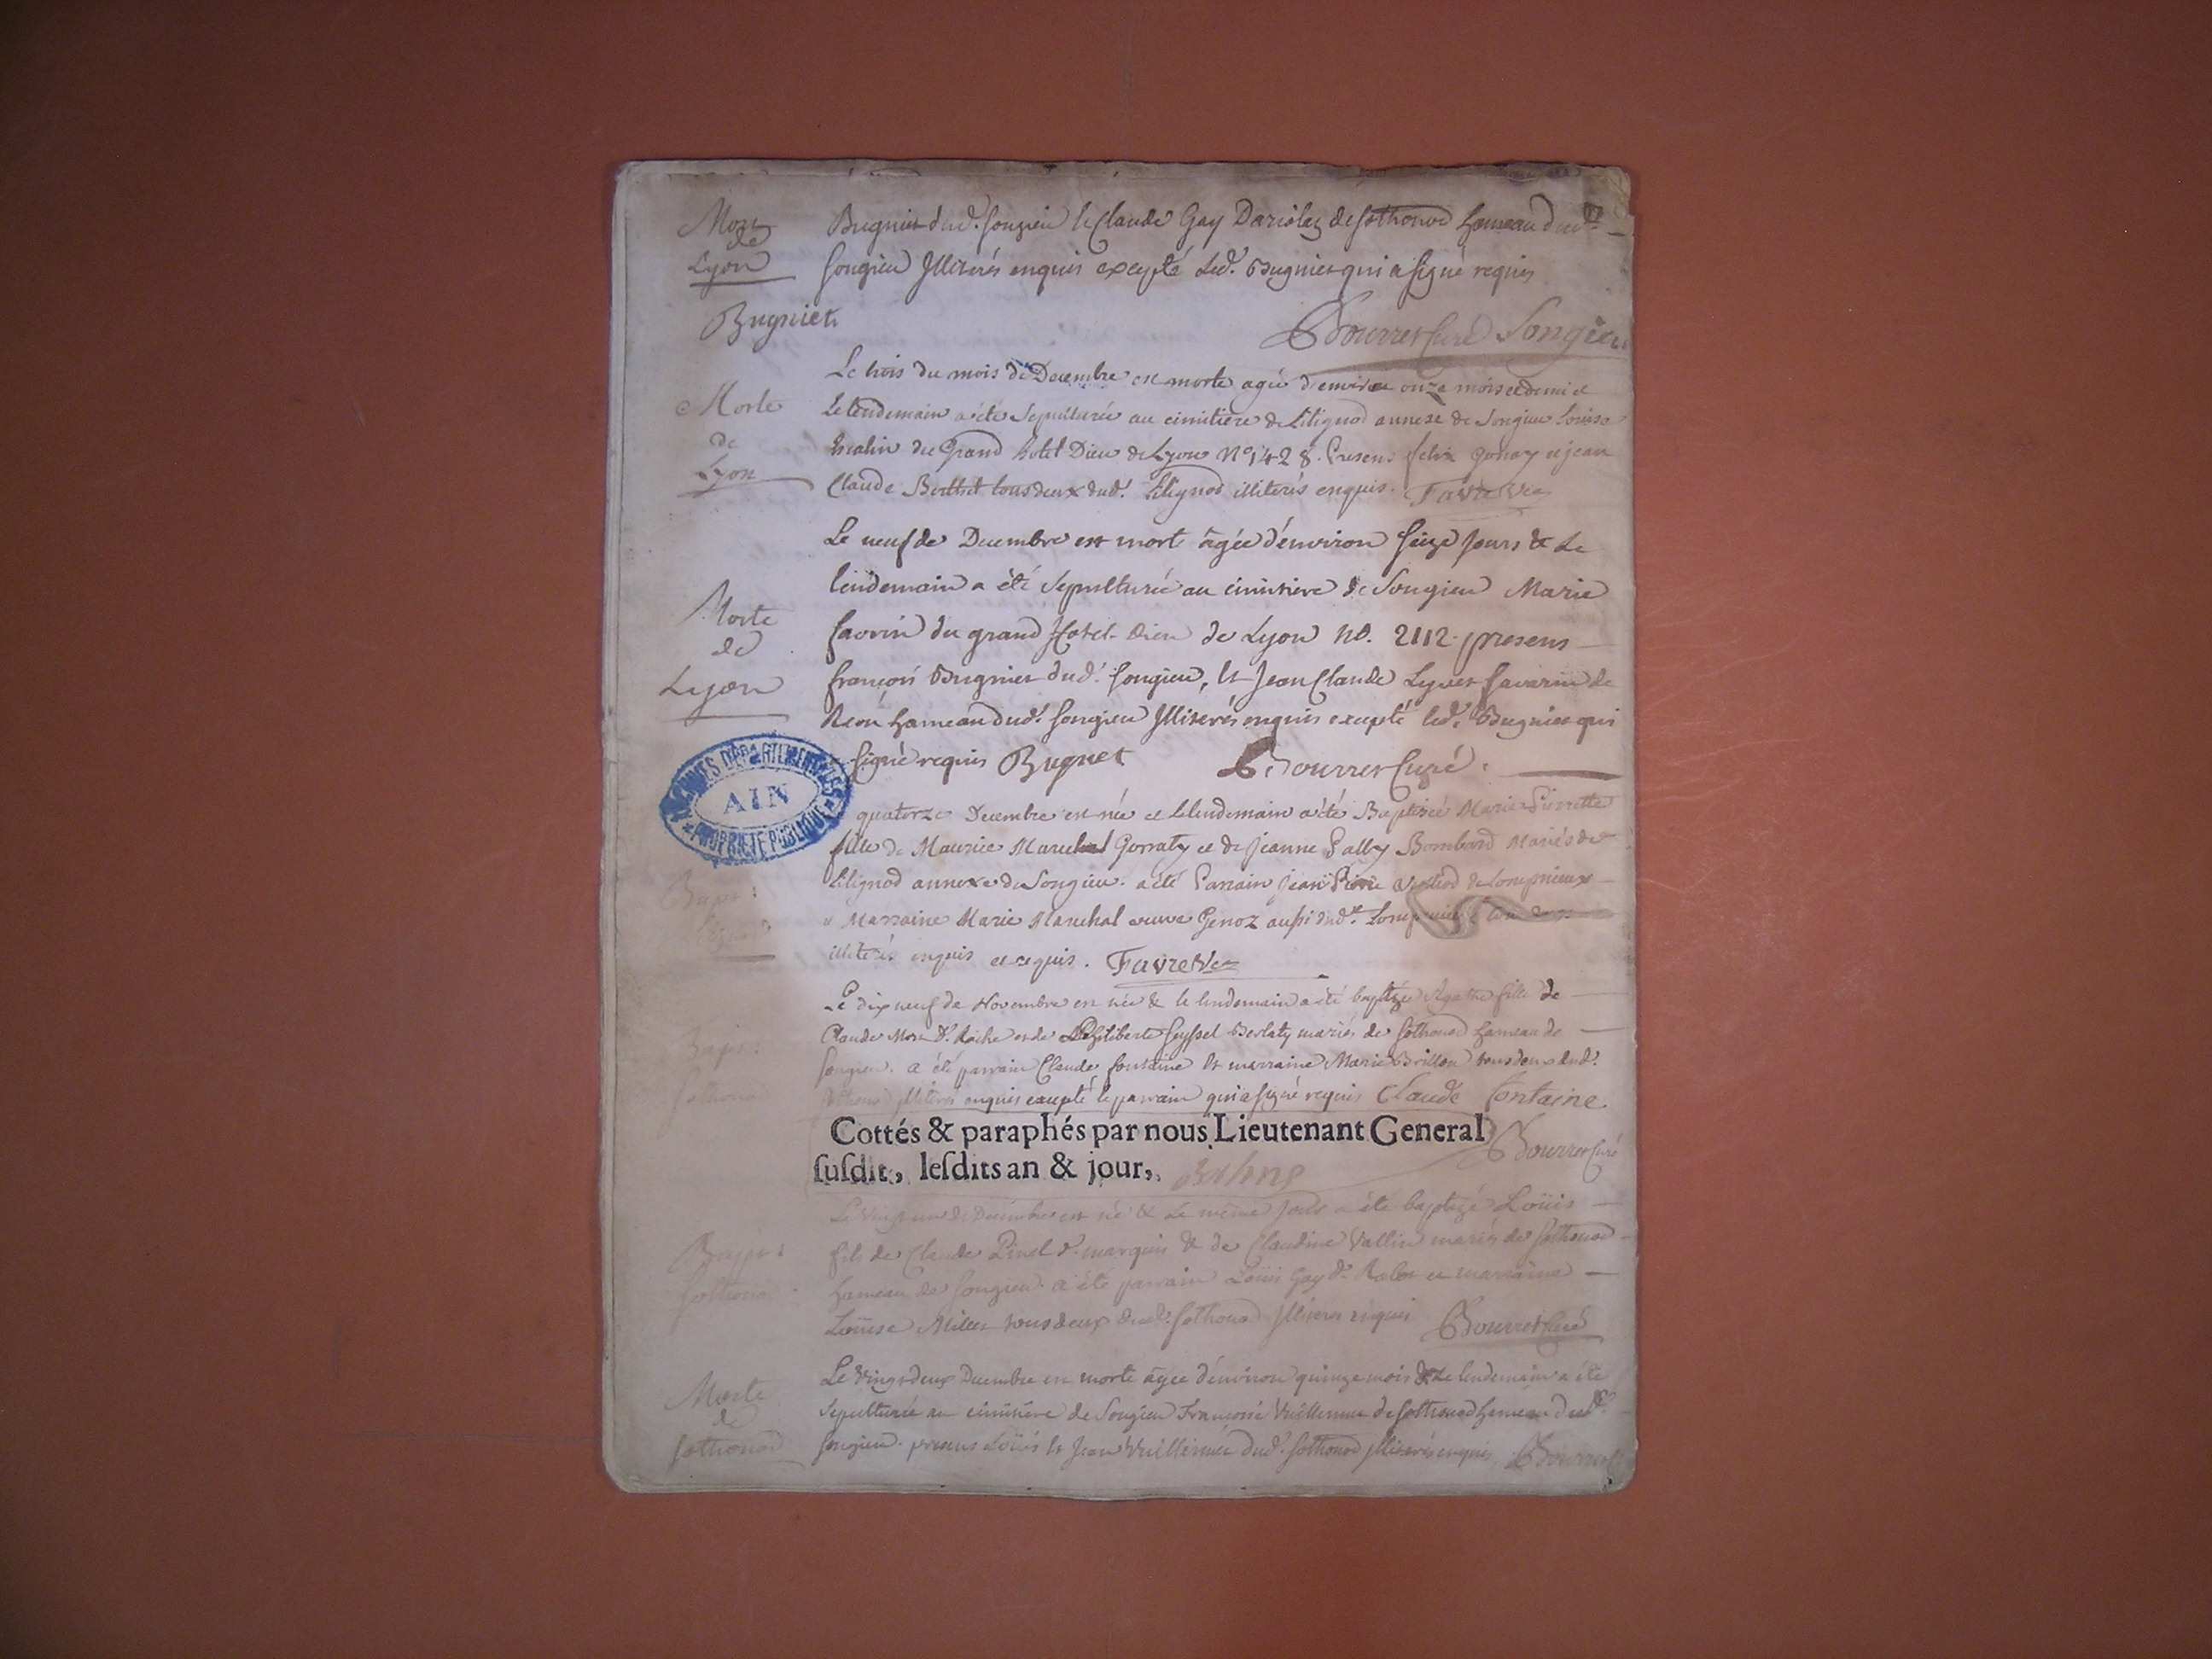 Mort
de
Lyon
Bugnier dud. songieu & Claude Gay Dariolez de sothonod hameau dud.
songieu Illiterés enquis excepté led. Bugnier qui a signé requis
Bugniet
Bourret Curé Songieu
Morte
de
Lyon
Le trois du mois de Decembre est morte agée d'environ onze mois et demi et
le lendemain a été sepulturée au cimitiere de Lilignod annexe de Songieu Louise
du Grand hotel Dieu de Lyon No 1428. Presens felix gonay et jean
Claude Berthet tous deux dud. Lilignod illiterés enquis. Favre Vic
Morte
de
Lyon
Le neuf de Decembre est morte âgée d'environ seize jours & Le
lendemain a été sepulturée au cimitiere de Songieu Marie
favorin du grand Hotel Dieu de Lyon no. 2112. presens
françois Bugnier dud. songieu, & Jean Claude Lyvet savarin de
hameau dud. songieu Illiterés enquis excepté led. Bugnier qui
a signé requis Bugnet Bourret Curé.
ARCHIVES DÉPARTEMENTALES
AIN
PROPRIÉTÉ PUBLIQUE
quatorze Decembre est née et le lendemain a été Baptisée Marie Pierrette
fille de Maurice Marechal Gorraty et de Jeanne Bombard Mariés de
Lilignod annexe de Songieu. a été Parrain Jean Pierre de Lompnieux
& Marraine Marie Marechal veuve Genoz aussi dud.
illiterés enquis et requis. Favre Vic
Bapt:
Bapt:
sothonod
Le dix neuf de Novembre est née & le lendemain a été baptizée Agathe fille de
Claude Mort d. Roche et de Philiberte seyssel Berlaty mariés de sothonod hameau de
songieu. a été parrain Claude fontaine & marraine Marie Brillon tous deux dud.
sothonod illiterés enquis excepté le parrain qui a signé requis Claude fontaine
Cottés & paraphés par nous Lieutenant General
susdit, lesdits an & jour,
Bourret Curé
Bapt:
sothonod
Le vingt un de Decembre est né & Le même jour a été baptizé Loüis
fils de Claude Pinel d. marquis & de Claudine Vallin mariés de sothonod
hameau de songieu. a été parrain Loüis Gay d. et marraine
Loüise Millet tous deux dud. sothonod Illiterés requis Bourret Curé
Morte
de
sothonod
Le vingt deux Decembre est morte âgée d'environ quinze mois & Le lendemain a été
sepulturée au cimitiere de Songieu Françoise Vuillermet de sothonod hameau dud.
songieu. presens Loüis & Jean Vuillermet dud. sothonod Illiterés enquis Bourret